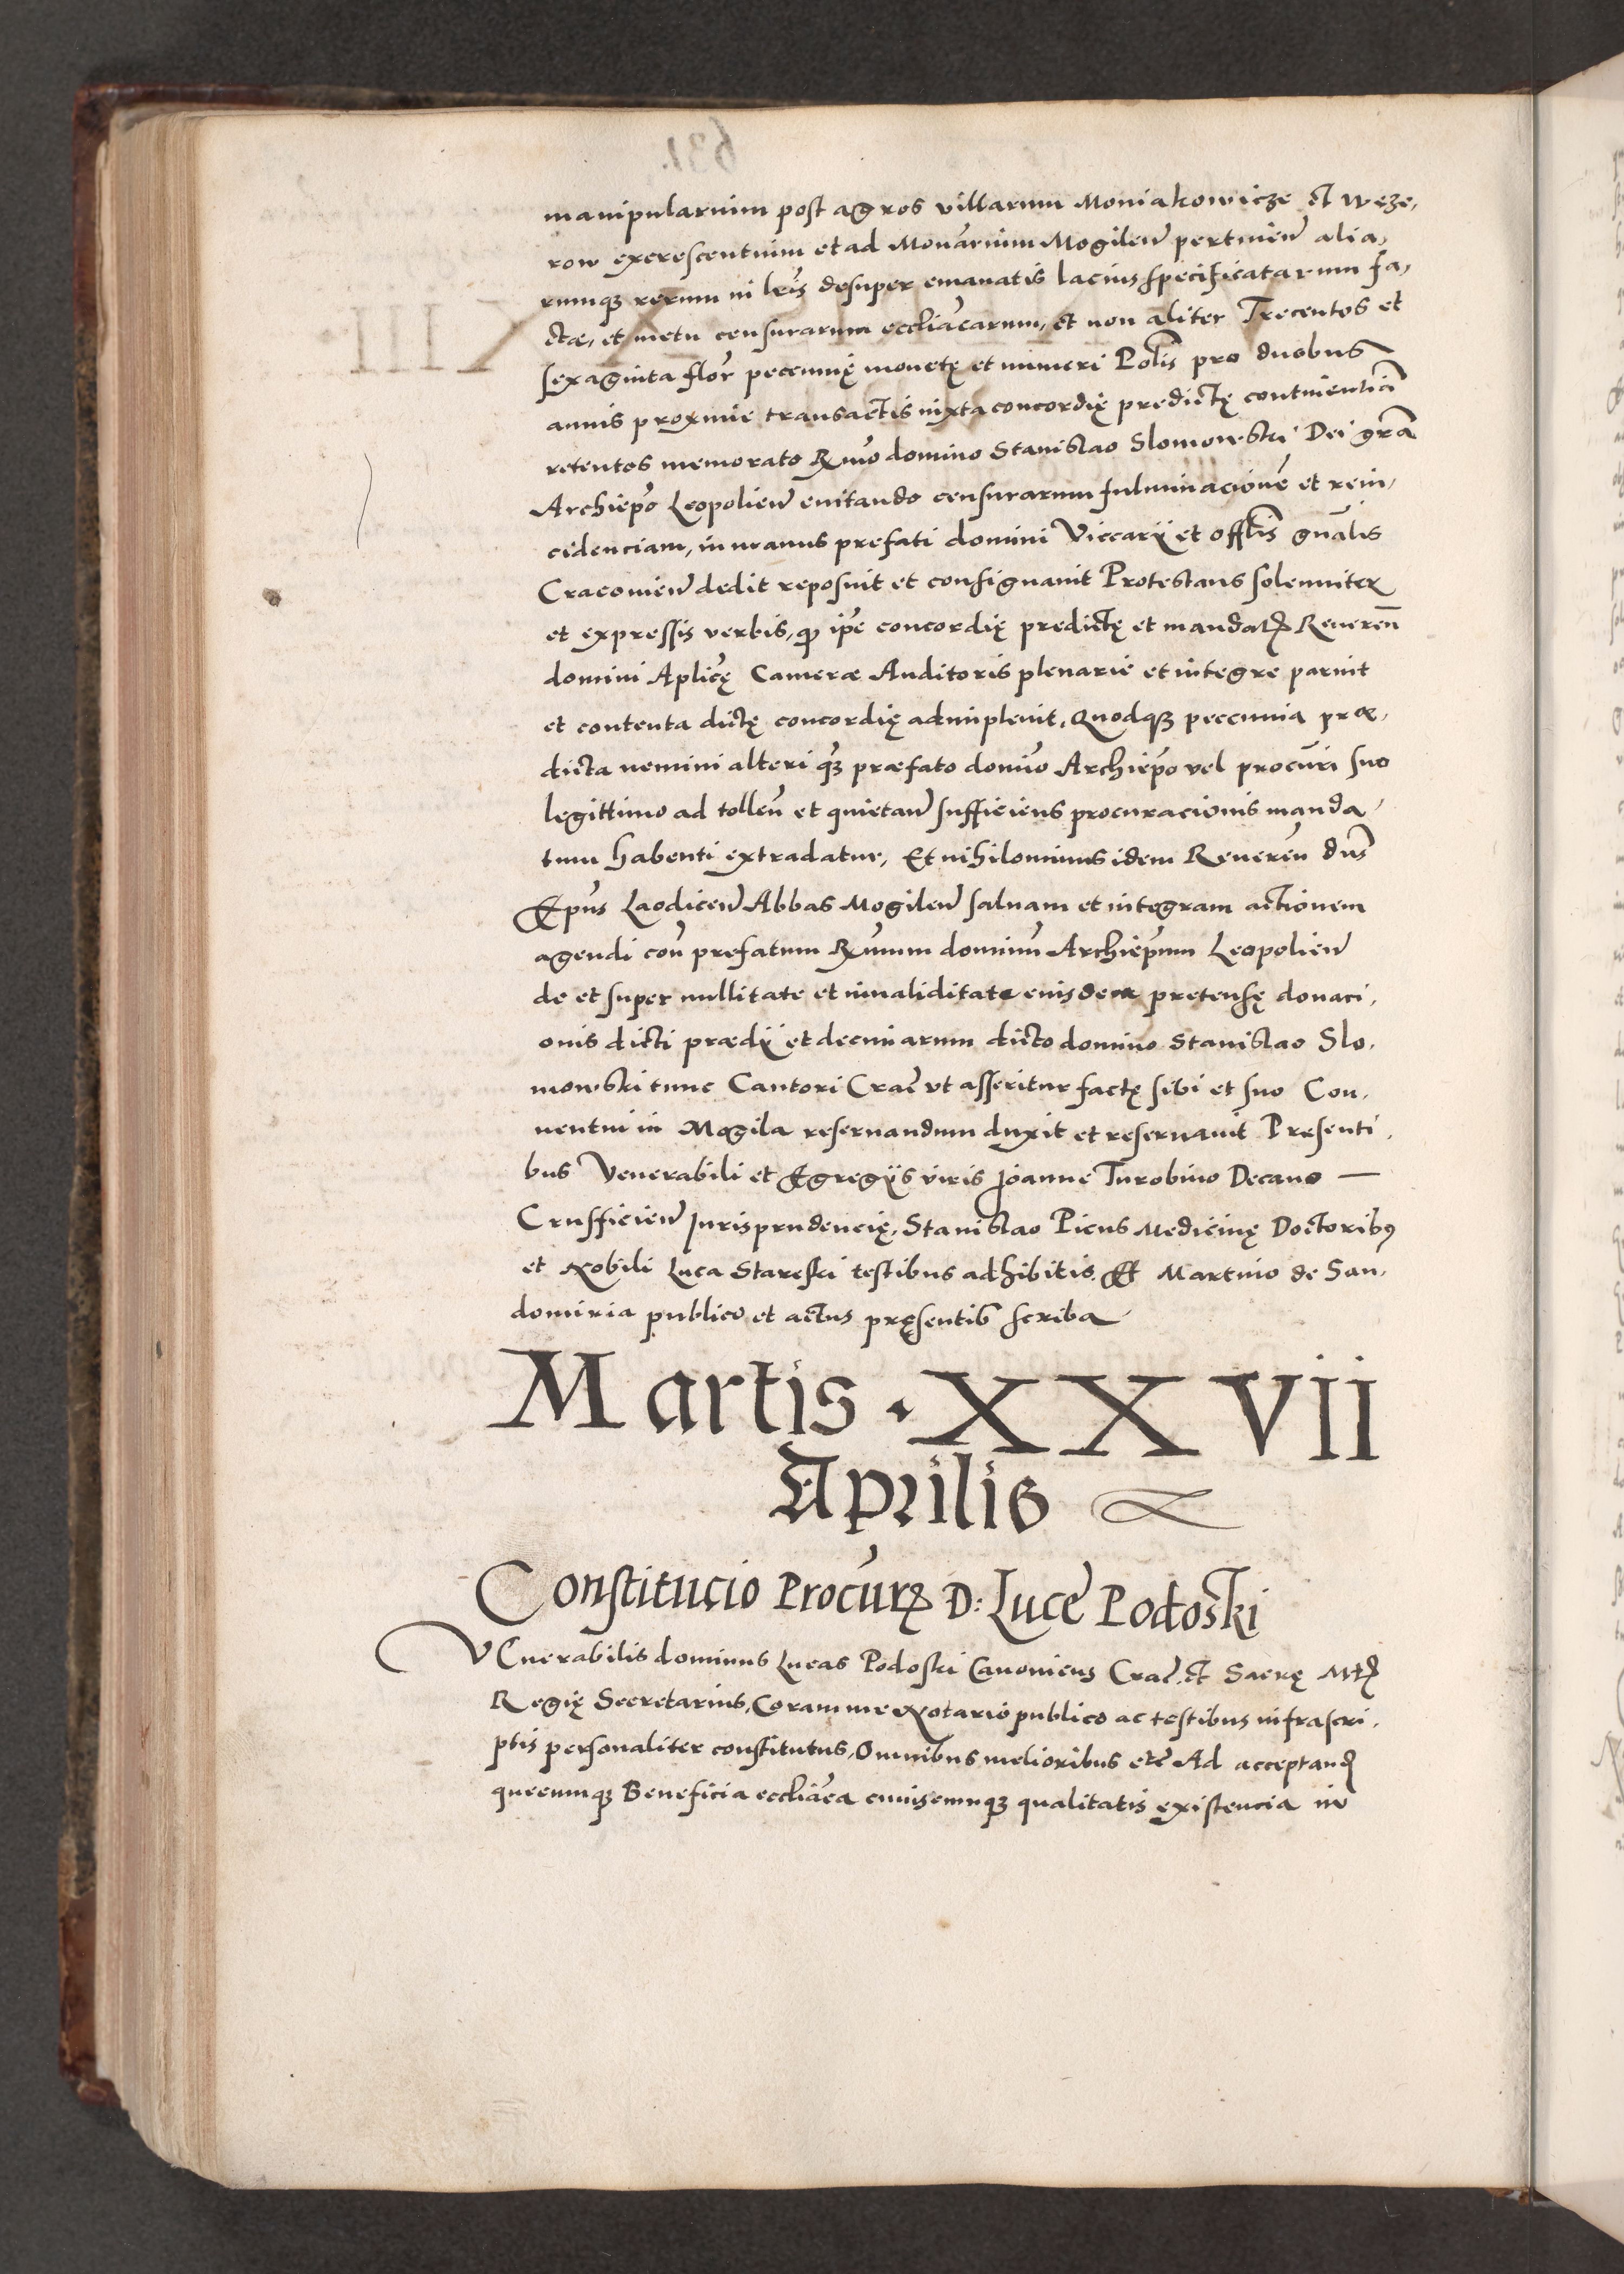 manipularium post agros villarum Moniakowicze et Węze,
row excrescentium et ad Monarium Mogilen̄ pertinen̄ alia,
rumqȝ rerum in lr̄is desuper emanatis lacius specificatarum fa,
ctæ, et metu censurarum eccl̄iacarum, et non aliter Trecentos et
sexaginta flor̄ peccunię monetę et numeri Pol̄is pro duobus
annis proxime transactis iuxta concordię predictę continentiā
retentos memorato R̄mo domino Stanislao Slomowski Dei gr̄a
Archiep̄o Leopolien̄ euitando censurarum fulminacionē et rein,
cidenciam, in manus prefati domini Viccarij et offl̄is gn̄alis
Cracouien̄ dedit reposuit et consignauit Protestans solenniter
et expressis verbis, qp ip̄e concordię predictę et mandatꝭ Reueren̄
domini Aplicę Cameræ Auditoris plenarie et integre paruit
et contenta dictę concordię adimpleuit, Quodqȝ peccunia præ,
dicta nemini alteri qȝ præfato domīo Archiep̄o vel procur̄i suo
legittimo ad tollen̄ et quietan̄ sufficiens procuracionis manda,
tum habenti extradatur, Et nihilominus idem Reueren̄ dn̄s
Ep̄us Laodicen̄ Abbas Mogilen̄ saluam et integram actionem
agendi con̄ prefatum R̄mum dominū Archiep̄um Leopolien̄
de et super nullitate et inualiditate eiusdem pretensę donaci,
onis dicti prædij et decimarum dicto domino Stanislao Slo,
mowski tunc Cantori Crac̄ vt asseritur factę sibi et suo Con,
uentui in Mogila reseruandum duxit et reseruauit Presenti,
bus Venerabili et Egregijs viris Joanne Turobino Decano —
Crusficien̄ Jurisprudencię, Stanislao Picus Medicinę Doctoribꝰ
et Nobili Luca Stareski testibus adhibitis, Et Martino de San,
domiria publico et actus pręsentis scriba
Martis · XXVII
Aprilis
Constitucio Procurꝝ D: Luce Podoski
VEnerabilis dominus Lucas Podoski Canonicus Crac̄. et Sacrę Mtꝭ
Regię Secretarius, Coram me Notario publico ac testibus infrascri,
ptis personaliter constitutus, Omnibus melioribus etc̄ Ad acceptandꝭ
quecumqȝ Beneficia eccl̄iaca cuiuscumqȝ qualitatis existencia in